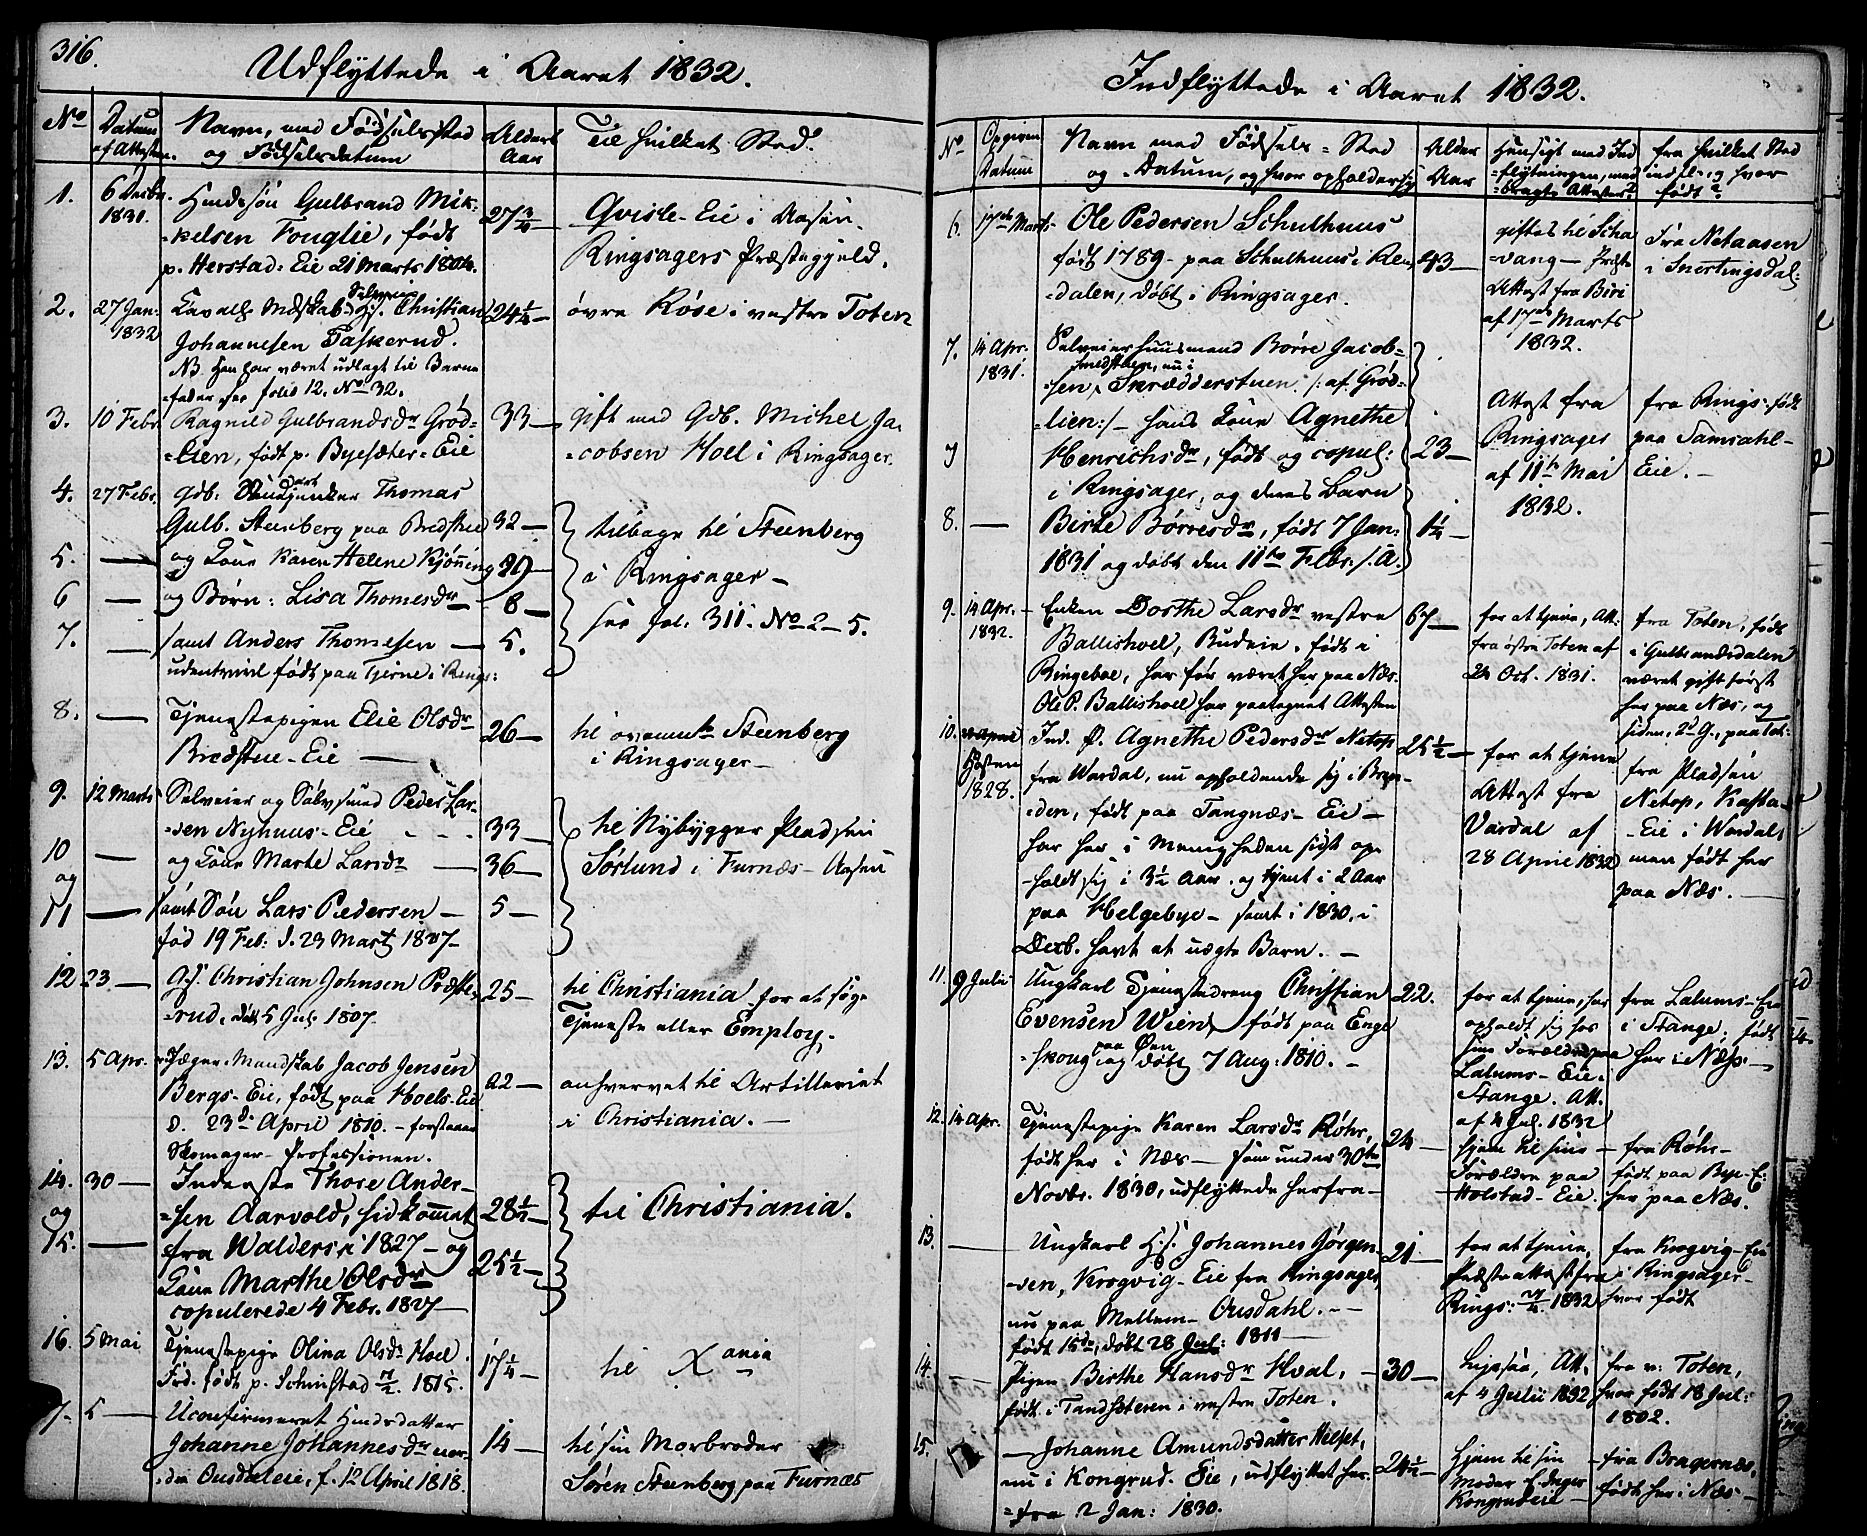 316.
Udflyttede i Aaret 1832.
No
Datum af Attesten.
Navn, med Fødselssted og Fødselsdatum
Alders Aar
Til hvilket Sted.
1.
6 Decbr. 1831.
Huusmdssøn Gulbrand Mik-
-kelsen Fouglie, født
p. Herstad-Eie 21 Marts 1804.
27¾
Qvisle-Eie i Aasen.
Ringsagers Præstegjeld.
2.
27 Jan. 1832
Cavall: Mdskab Selveier Gs. Christian
Johannesen Taskerud.
NB Han har været udlagt til Barne
-fader see folio 12. No 32.
24¼ —
øvre Røse i vestre Toten
3.
10 Febr.
Ragnild Gulbrandsdr Grød-
-lien, født p. Byesæter-Eie
33 —
gift med Gdb. Michel Ja-
-cobsen Hoel i Ringsager.
4.
27 Febr.
Gdb: Thomas
Gulb. Steenberg paa Bredstue
32 —
tilbage til Steenberg
i Ringsager —
see fol: 311. No 2 – 5.
5.
—
og Kone Karen Helene Kjønnig
30 —
6
—
og Børn: Lisa Thomesdr
8 —
7.
—
samt Anders Thomesen —
udentvivl født paa Tjerne i Rings:
5.
8.
—
Tjenestepigen Elie Olsdr
Bredstue-Eie —
26 —
til ovennte Steenberg
i Ringsager —
9.
12 Marts
Selveier og Sølvsmed Peder Lar-
-sen Nyhuus-Eie
33 —
til Nybygger Pladsen
Sørlund i Furnæs-Aasen
10
—
og Kone Marte Larsdr —
36 —
og
11
—
samt Søn Lars Pedersen —
fød 19 Feb: d. 29 Mart 1827 —
5 —
12
23. —
Gs. Christian Johnsen Præste-
-rud, døbt 5 Jul. 1807.
25 —
til Christiania for at søge
Tjeneste eller Employ.
13.
5 Apr.
Jæger-Mandskab Jacob Jensen
Bergs-Eie, født paa Hoels-Eie
d. 23d April 1810. — forstaaer
Skomager-Professionen.
22 —
anhvervet til Artilleriet
i Christiania. —
14.
30 —
Inderste Thore Ander-
-sen Aarvold, hidkommet
fra Walders i 1827 — og
28½ —
til Christiania.
og
15.
—
Kone Marthe Olsdr
copulerede 4 Febr. 1827 —
25½ —
16.
5 Mai
Tjenestepige Olina Olsdr Hoel.
Ird. født p. Schiestad 1815.
17¼ —
til Xania
17.
5 —
Uconfirmeret Huusmdsdatter
Johanne Johannesdr ner-
-dre Ousdaleie, f. 12 April 1818.
14 —
til sin Morbroder
Søren Steenberg paa Furnæs
Indflyttede i Aaret 1832.
No
Opgiven Datum
Navn med Fødsels-Sted
og -Datum, og hvor opholder sig
Alder Aar
Hensigt med Ind
-flytningen, med
-bragte Attester?
fra hvilket Sted
indfl. og hvor
født?
6.
17de Marts
Ole Pedersen Schulhuus
født 1789 — paa Schulhuus i Ren-
-dalen, døbt i Ringsager.
43 —
giftes til Scha
-vang — Præste
Attest fra Biri
af 17de Marts
1832.
Fra Netaasen
i Snertingsdal.
7.
14 Apr. 1831.
Selveier huusmand Børre Jacob-
-sen, Smedstuen, nu i Skrædderstuen /: af Grød-
-lien:/ — hans Kone Agnethe
Henrichsdr, født og copul:
i Ringsager, og deres Barn
23 —
Attest fra
Ringsager
af 11te Mai
1832.
fra Rings. født
paa Samsahl-
Eie. —
8.
—
Birte Børresdr, født 7 Jan:
1831 og døbt den 11te Febr. s. A.
1¼ —
9.
14 Apr. 1832.
Enken Dorthe Larsdr vestre
Ballishoel, Budeie, født i
Ringeboe, har før været her paa Næs.
Ole P. Ballishoel har paategnet Attesten
67 —
for at tjene, Att.
fra østre Toten af
24 Oct. 1831.
fra Toten, født
i Gulbrandsdalen
været gift først
her paa Næs, og
siden, 2d G., paa Tot.
10.
Høsten 1828.
Ind. P. Agnethe Pedersdr Netop
fra Wardal, nu opholdende sig i Bræ-
-den, født paa Tangnæs-Eie —
har her i Menigheden sidst op-
-holdt sig i 3½ Aar, og tjent i 2 Aar
paa Helgebye — samt i 1830, i
Decb. havt et uægte Barn. —
25½ —
for at tjene
Attest fra
Vardal af
28 April 1832
fra Pladsen
Netop, Kasta-
-Eie i Wardal,
men født her
paa Næs. —
11.
9 Julii
Ungkarl Tjenestedreng Christian
Evensen Wien, født paa Enge
-skoug paa Øen og døbt 7 Aug. 1810. —
22.
for at tjene, har
opholdt sig hos
sine Forældre paa
Lalums-Eie i
Stange. Att.
af 4 Jul. 1832
fra Lalums-Eie
i Stange, født
her i Næs. —
12.
14 Apr.
Tjenestepige Karen Larsdr Røhr,
født her i Næs — som under 30te
Novbr. 1830, udflyttede herfra —
24 —
hjem til sine
Forældre paa
Holstad-Eie.
fra Røhr —
født paa Bye-E:
her paa Næs.
13.
—
Ungkarl Hs. Johannes Jørgen-
-sen, Krogvig-Eie fra Ringsager,
nu paa Mellem-Ousdahl. —
født 15de, døbt 28 Jul: 1811 —
21 —
for at tjene,
Præsteattest fra
Rings: 1832
fra Krogvig-Eie
i Ringsager —
hvor født
14.
—
Pigen Birthe Hansdr Hval, —
født i Tandsæteren i vestre Toten.
30 —
Ligesaa, Att.
af 4 Julii 1832
fra v: Toten,
hvor født 18 Jul:
1802.
15.
— Johanne Amundsdatter Helset,
nu i Kongrud-Eie, udflyttet her-
-fra 2 Jan: 1830.
24½ —
Hjem til sin
Moder Enke
Kongrudeie —
fra Bragernæs,
født her i Næs —